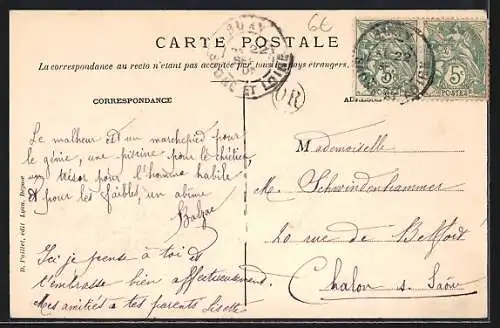 6€
CARTE POSTALE
La correspondance au recto n'étant pas acceptée par tous les pays étrangers,
5c 5c
POSTES
ET LOIRE
OR
CORRESPONDANCE
Le malheur est un marchepied pour
le génie, une piscine pour le chrétien,
un trésor pour l'homme habile
& pour les faibles, un abîme
Balzac
Ici je pense à toi et
t'embrasse bien affectueusement.
Mes amitiés à tes parents Lisette
Mademoiselle
M. Schwindenhammer
20 rue de Belfort
Chalon s. Saône
B. Poillet, édit. Lyon.